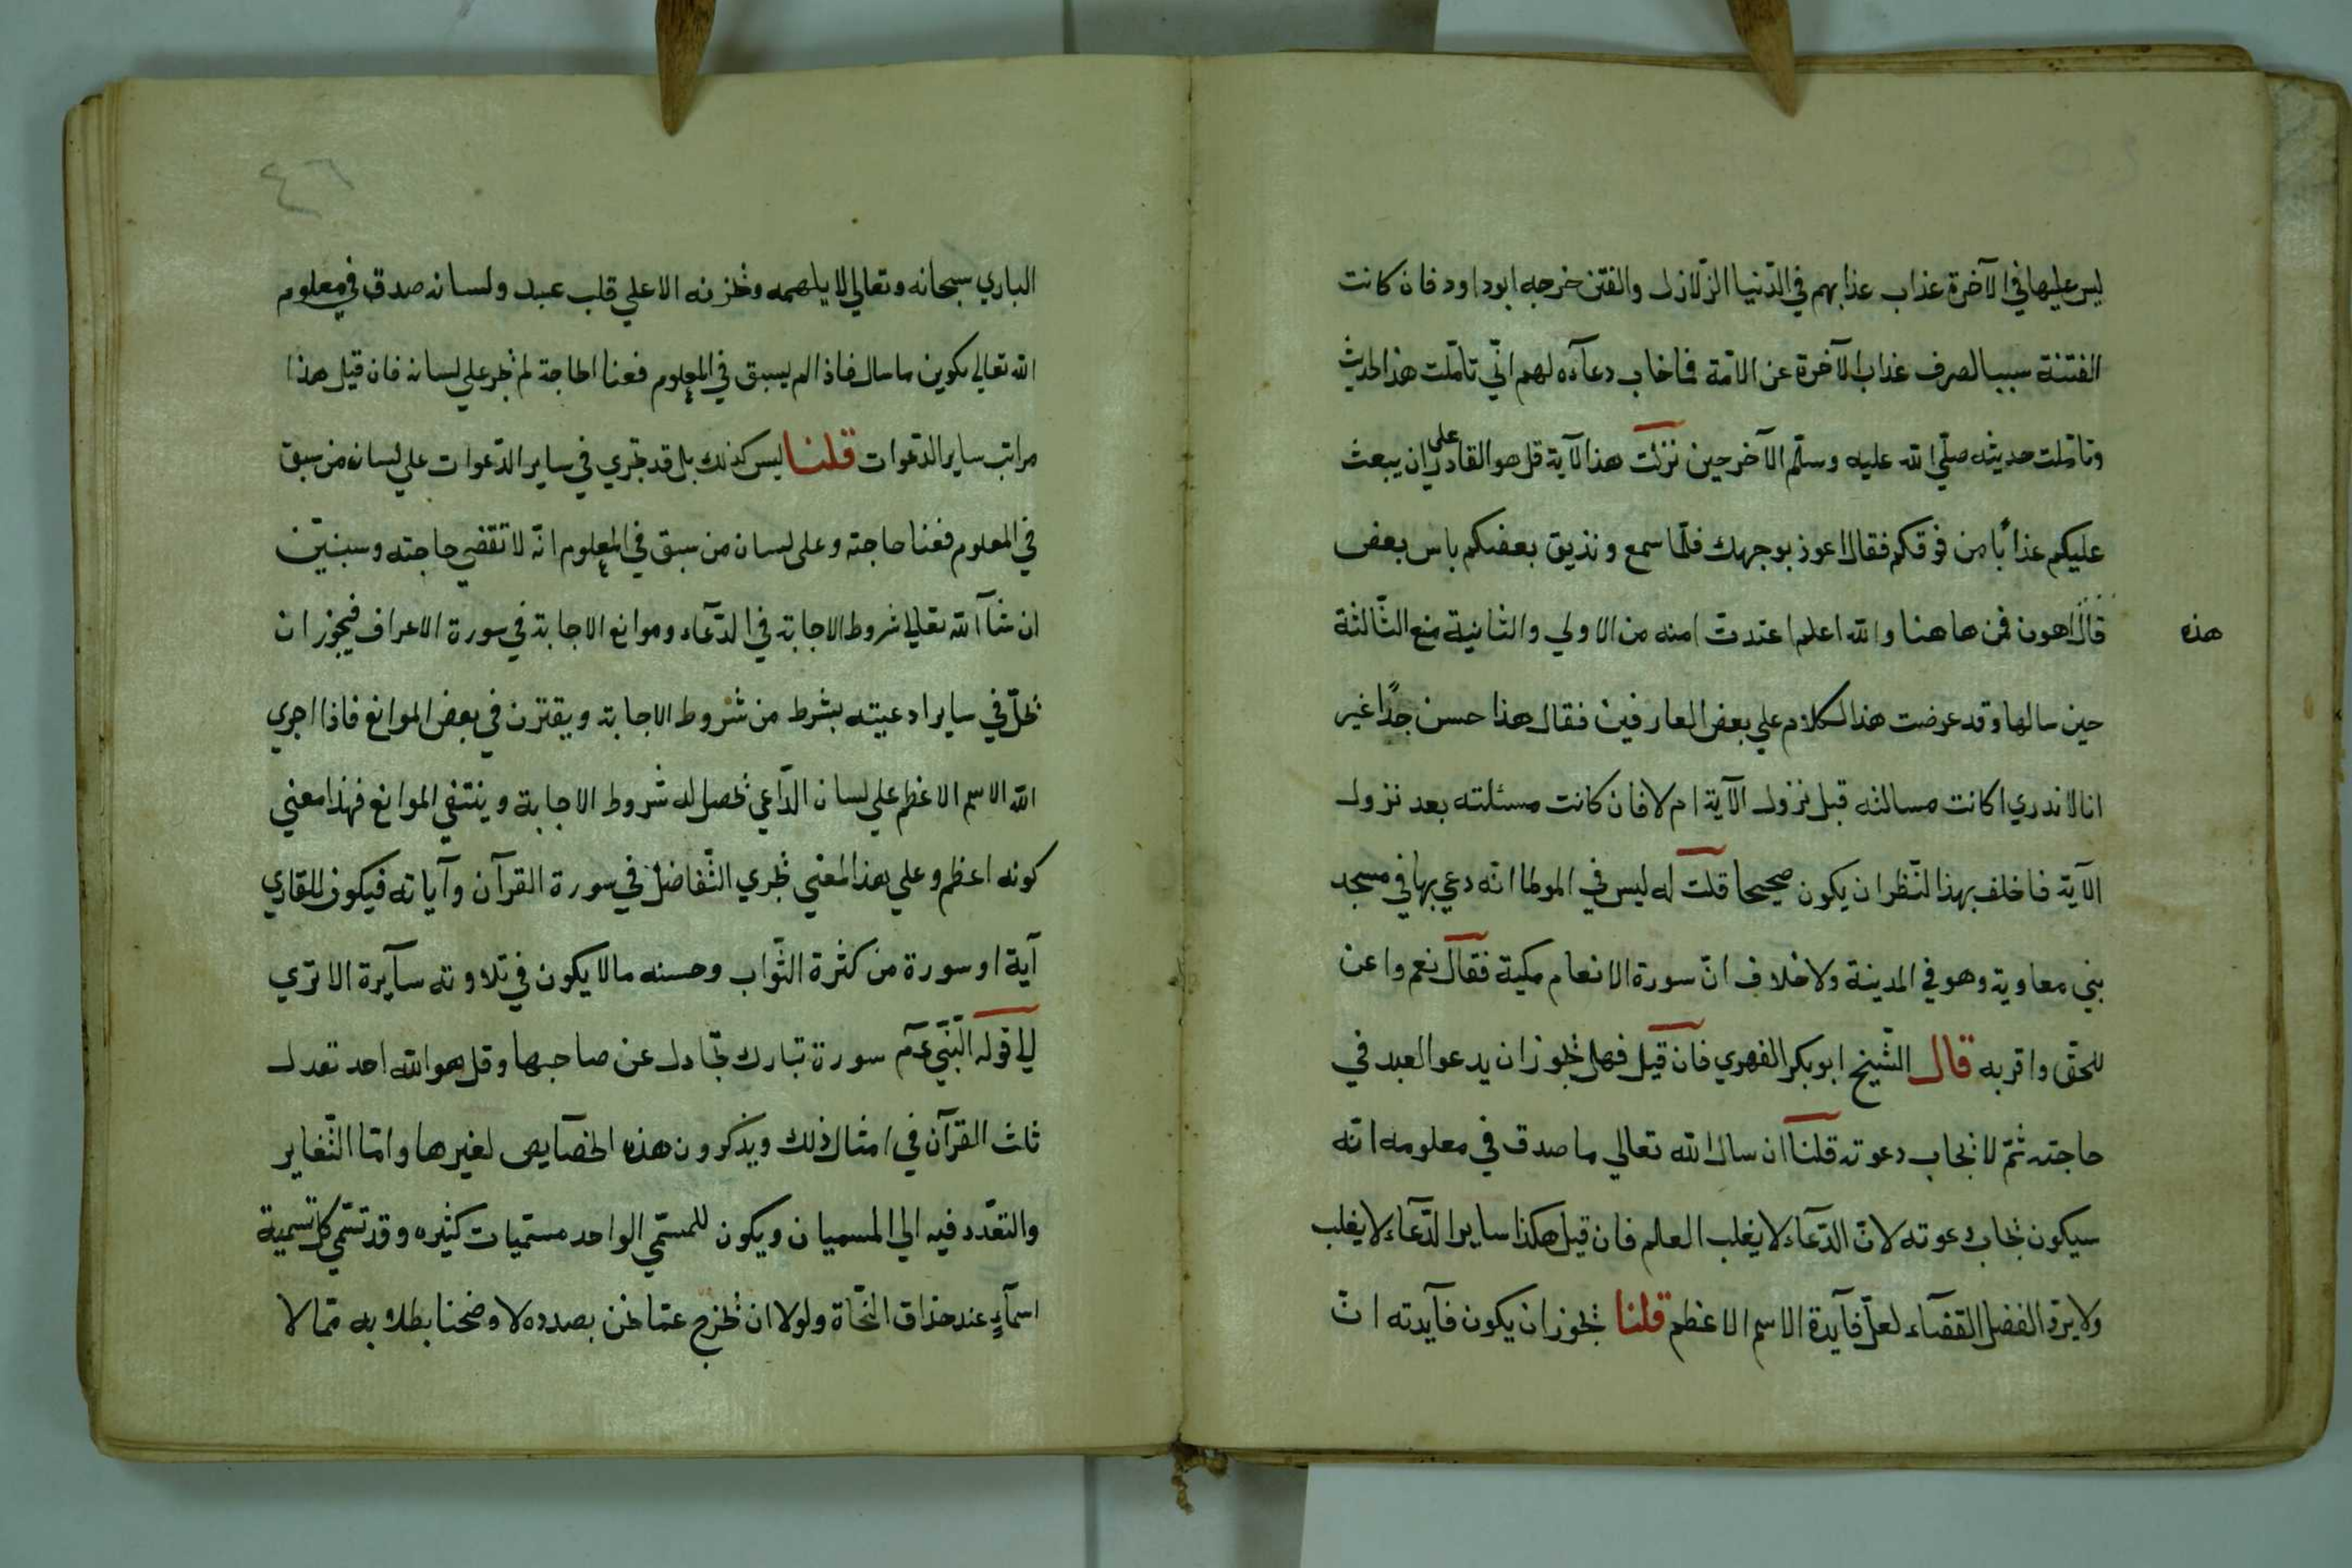 ليس عليها في الآخرة عذاب عذابهم في الدّنيا الزّلازل والفتن خرجه ابوداود فان كانت
الفتنة سببا لصرف عذاب الآخرة عن الامّة فما خاب دعآءه لهم انّي تاملّت هذا الحديث
وتاملّت حديثه صلّي الله عليه وسلّم الآخر حين نزلت هذا الآية قل هو القادر على ان يبعث
عليكم عذابًا من فوقكم فقال اعوذ بوجهك فلمّا سمع ونذيق بعضكم باس بعض
هذه
قال اهون فمن هاهنا والله اعلم اعتدت امته من الاولي والثانية منع الثّالثة
حين سالها وقد عرضت هذا الكلام علي بعض العارفين فقال هذا حسن جدًّا غير
انا لا ندري اكانت مسالته قبل نزول الآية ام لا فان كانت مسئلته بعد نزول
الآية فاخلف بهذا النّظر ان يكون صحيحا قلت له ليس في الموطا انّه دعي بها في مسجد
بني معاوية وهو في المدينة ولا خلاف انّ سورة الانعام مكية فقال نعم واعن
للحقّ واقر به قال الشّيخ ابوبكر الفهري فان قيل فهل يجوز ان يدعو العبد في
حاجته ثمّ لا يجاب دعوته قلنا ان سال الله تعالي ما صدق في معلومه انّه
سيكون يجاب دعوته لانّ الدّعآء لا يغلب العلم فان قيل هكذا ساير الدّعآء لا يغلب
ولا يردّ الفضل القضآء لعلّ فآيدة الاسم الاعظم قلنا يجوز ان يكون فآيدته انّ
٤٦
الباري سبحانه وتعالي لا يلهمه ويخزنه الا علي قلب عبد ولسانه صدق في معلوم
الله تعالي بكوين ما سال فاذا لم يسبق في المعلوم فعنا الحاجة لم يجر علي لسانه فان قيل هذا
مراتب ساير الدّعوات قلنا ليس كذلك بل قد يجري في ساير الدّعوات علي لسان من سبق
في المعلوم فعنا حاجته وعلى لسان من سبق في المعلوم انّه لا تقضي حاجته وسنبيّن
ان شآ الله تعالي شروط الاجابة في الدّعآء وموانع الاجابة في سورة الاعراف فيجوز ان
يخلّ في ساير ادعيته بشرط من شروط الاجابة ويقترن في بعض الموانع فاذا اجري
الله الاسم الاعظم علي لسان الدّاعي يحصل له شروط الاجابة وينتفي الموانع فهذا معني
كونه اعظم وعلي هذا المعني يجري التّفاضل في سورة القرآن وآياته فيكون للقاري
آية او سورة من كثرة الثّواب وحسنه مالا يكون في تلاوته سآيرة الا تري
الي قوله النّبي عم سورة تبارك تجادل عن صاحبها وقل هو الله احد تعدل
ثلث القرآن في امثال ذلك ويذكرون هذه الخصآيص لغيرها وامّا التّغاير
والتعدّد فيه الي المسميان ويكون للمسمّي الواحد مسمّيات كثيره وقد تسمّي كل تسمية
اسمآء عند حذاق النحّاة ولولا ان يخرج عمّا نحن بصدده لاوضحنا بطلا به ممّا لا